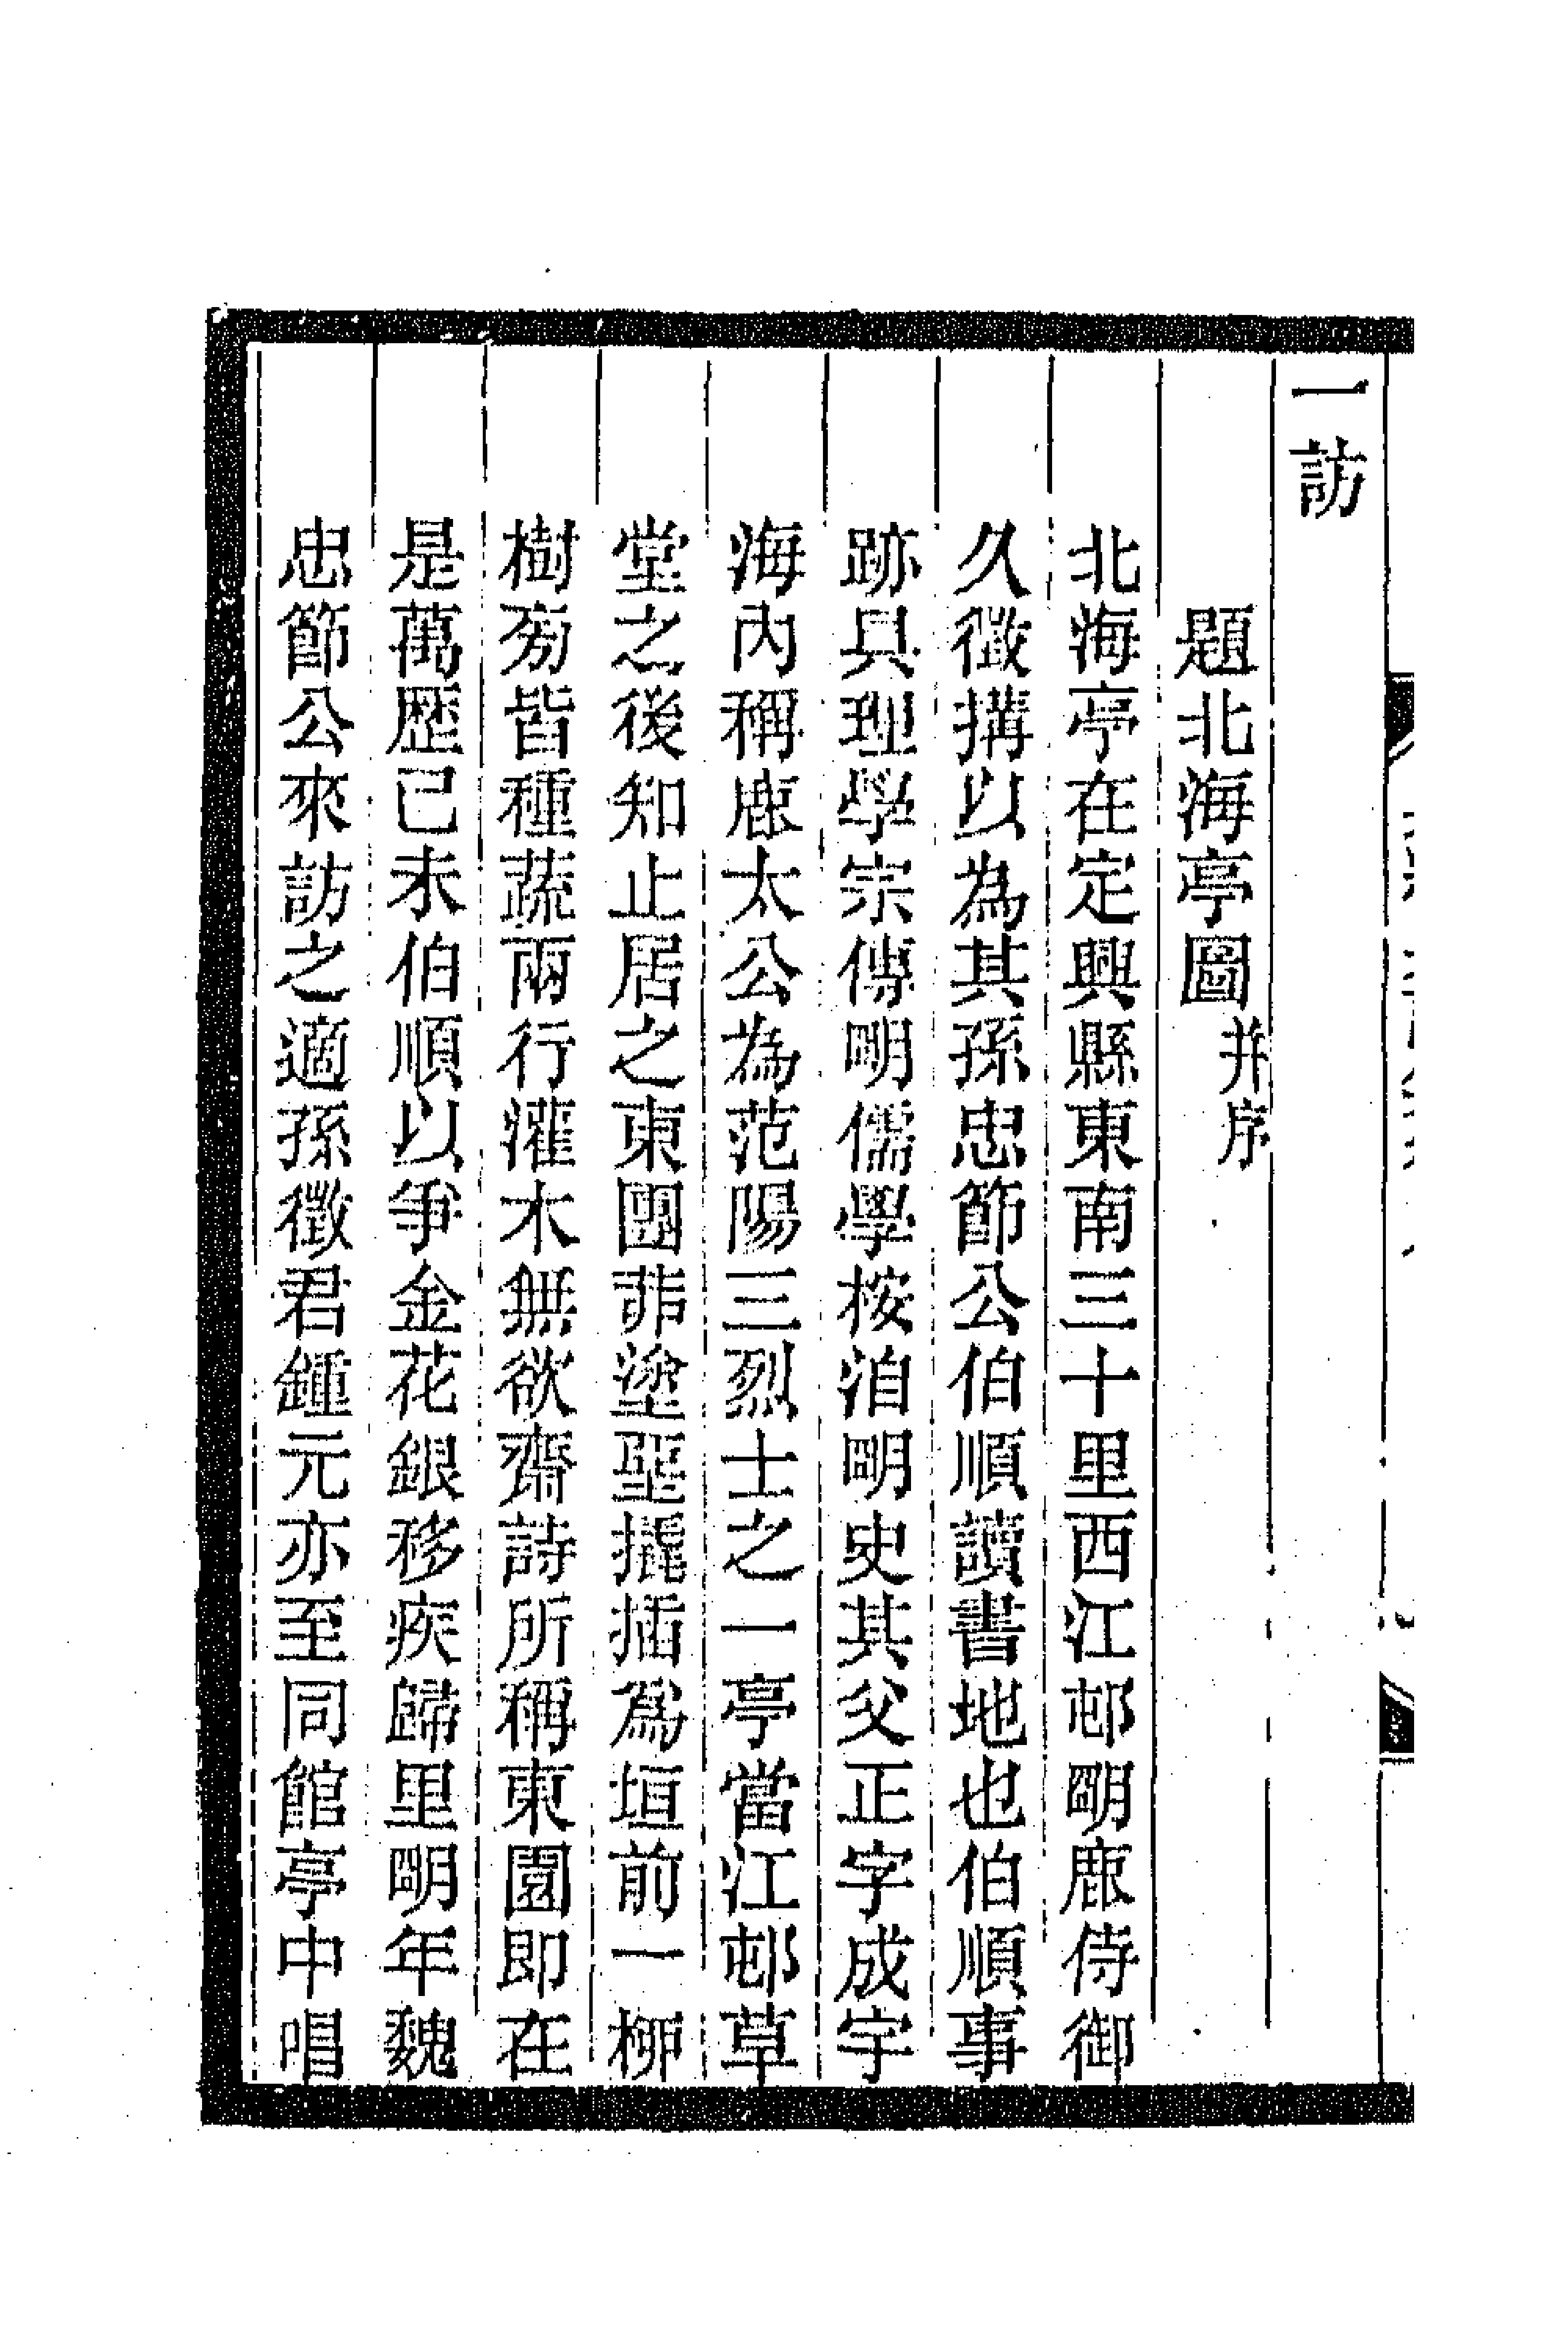 一訪
題北海亭圖并序
北海亭在定興縣東南三十里西江邨明鹿侍御
久徵搆以為其孫忠節公伯順讀書地也伯順事
跡具理學宗傳明儒學桉洎明史其父正字成宇
海內稱鹿太公為范陽三烈士之一亭當江邨草
堂之後知止居之東圃菲塗堊㨨插為垣前一柳
樹旁皆種蔬兩行灌木無欲齋詩所稱東園即在
是萬歷己未伯順以爭金花銀移疾歸里明年魏
忠節公來訪之適孫徵君鍾元亦至同館亭中唱